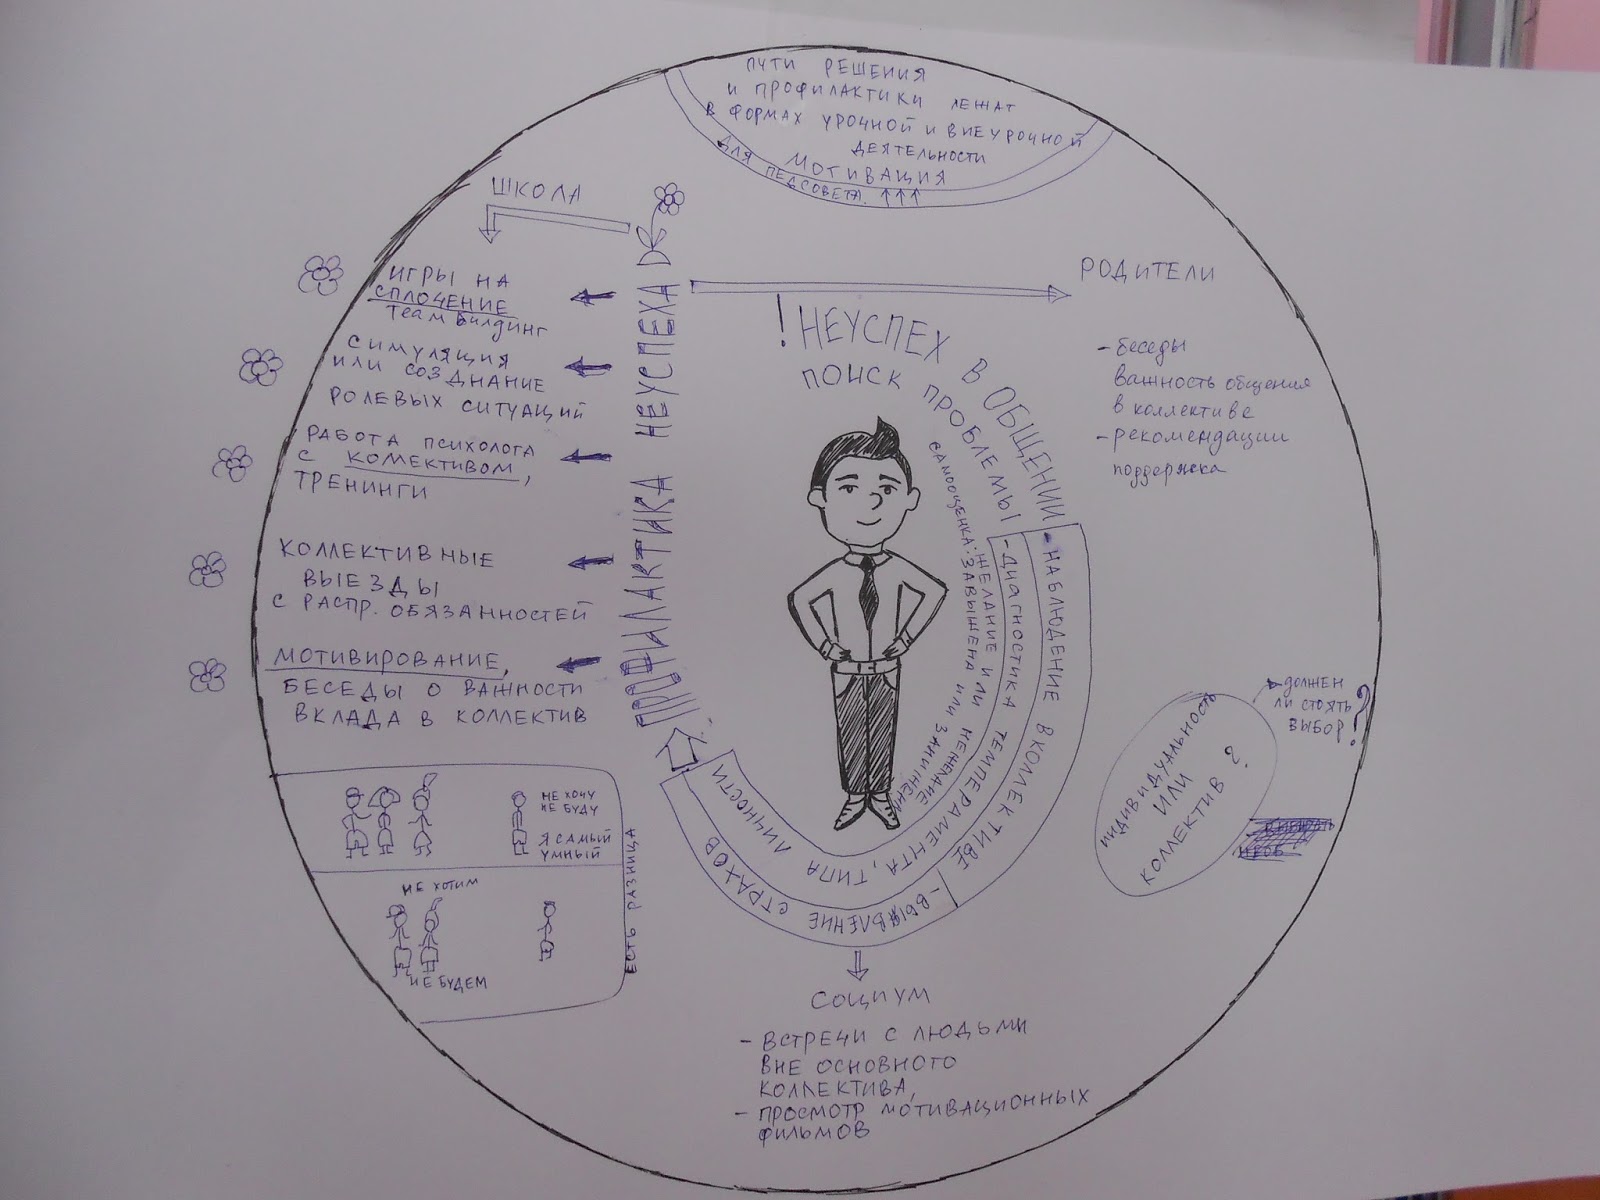 ПУТИ РЕШЕНИЯ
И ПРОФИЛАКТИКИ ЛЕЖАТ
В ФОРМАХ УРОЧНОЙ И ВНЕУРОЧНОЙ
ДЕЯТЕЛЬНОСТИ
МОТИВАЦИЯ
ДЛЯ ПЕДСОВЕТА. ↑↑↑
ШКОЛА
ИГРЫ НА
СПЛОЧЕНИЕ
Теам билдинг
СИМУЛЯЦИЯ
ИЛИ СОЗДНАНИЕ
РОЛЕВЫХ СИТУАЦИЙ
РАБОТА ПСИХОЛОГА
С КОМЕКТИВОМ,
ТРЕНИНГИ
КОЛЛЕКТИВНЫЕ
ВЫЕЗДЫ
С РАСПР. ОБЯЗАННОСТЕЙ
МОТИВИРОВАНИЕ,
БЕСЕДЫ О ВАЖНОСТИ
ВКЛАДА В КОЛЛЕКТИВ
ПРОФИЛАКТИКА НЕУСПЕХА
РОДИТЕЛИ
- беседы
важность общения
в коллективе
- рекомендации
поддержка
! НЕУСПЕХ В ОБЩЕНИИ
ПОИСК ПРОБЛЕМЫ
- НАБЛЮДЕНИЕ В КОЛЛЕКТИВЕ
- ВЫЯВЛЕНИЕ СТРАХОВ
- ДИАГНОСТИКА ТЕМПЕРАМЕНТА, ТИПА ЛИЧНОСТИ
ЖЕЛАНИЕ ИЛИ НЕЖЕЛАНИЕ
САМООЦЕНКА: ЗАВЫШЕНА ИЛИ ЗАНИЖЕНА
ДОЛЖЕН
ЛИ СТОЯТЬ
ВЫБОР?
ИНДИВИДУАЛЬНОСТЬ
ИЛИ
КОЛЛЕКТИВ?
НЕ ХОЧУ
НЕ БУДУ
Я САМЫЙ
УМНЫЙ
НЕ ХОТИМ
НЕ БУДЕМ
ЕСТЬ РАЗНИЦА
СОЦИУМ
- ВСТРЕЧИ С ЛЮДЬМИ
ВНЕ ОСНОВНОГО
КОЛЛЕКТИВА,
- ПРОСМОТР МОТИВАЦИОННЫХ
ФИЛЬМОВ